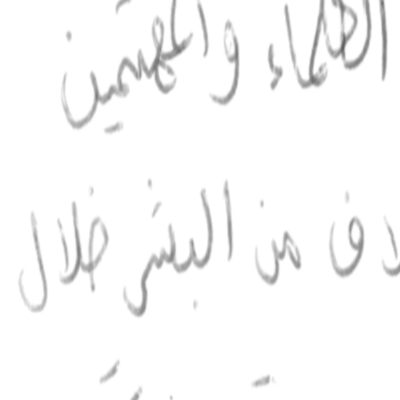 العلماء والمهتمين
لاف من البشر خلال